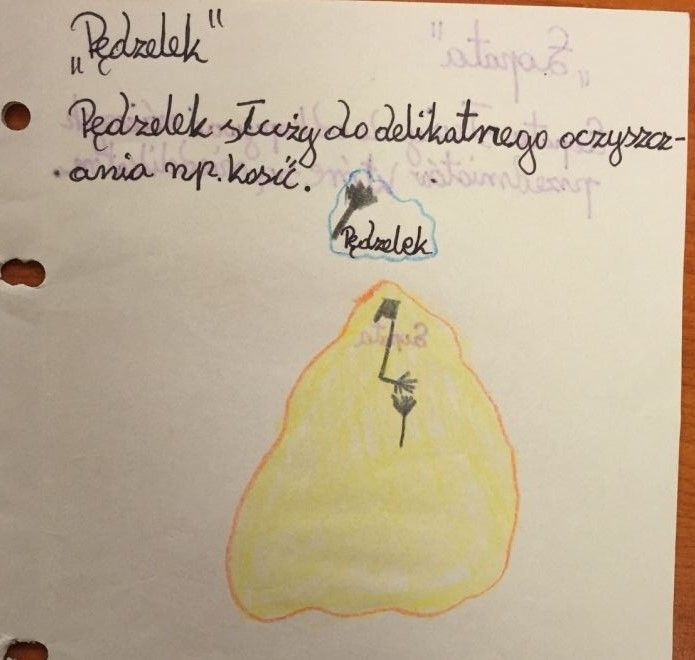 „Pędzelek"
Pędzelek służy do delikatnego oczyszcz-
ania np. kosić.
Pędzelek